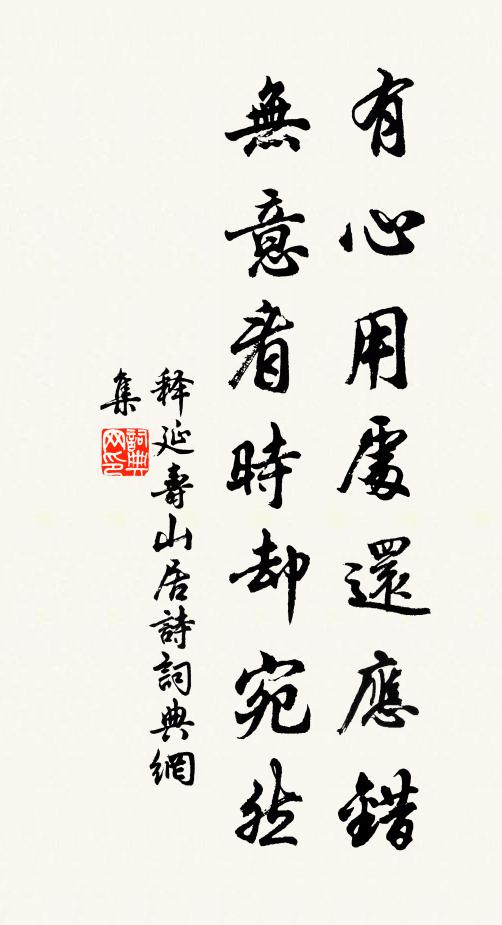 有心用處還應錯
無意看時却宛然
释延壽山居詩詞典網
集
詞典网印